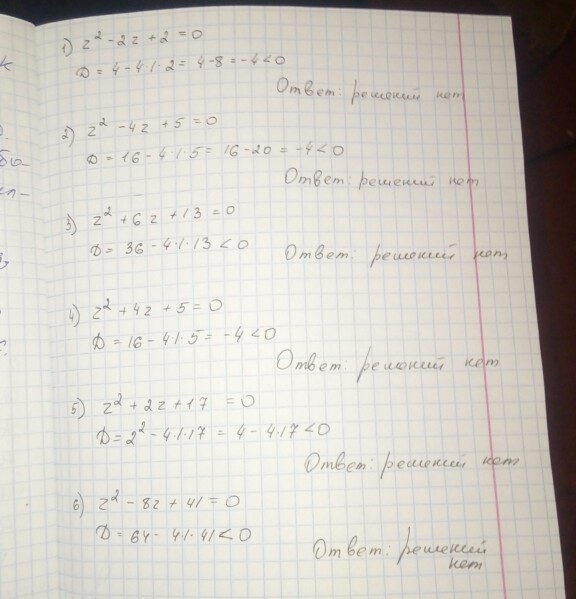 1) z² - 2z + 2 = 0
D = 4 - 4·1·2 = 4 - 8 = -4 < 0
Ответ: решений нет
2) z² - 4z + 5 = 0
D = 16 - 4·1·5 = 16 - 20 = -4 < 0
Ответ: решений нет
3) z² + 6z + 13 = 0
D = 36 - 4·1·13 < 0
Ответ: решений нет
4) z² + 4z + 5 = 0
D = 16 - 4·1·5 = -4 < 0
Ответ: решений нет
5) z² + 2z + 17 = 0
D = 2² - 4·1·17 = 4 - 4·17 < 0
Ответ: решений нет
6) z² - 8z + 41 = 0
D = 64 - 4·1·41 < 0
Ответ: решений
нет